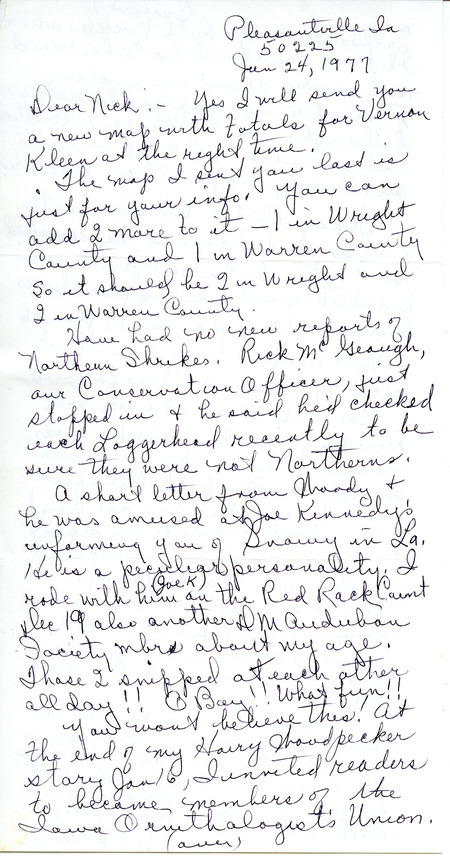 Pleasantville Ia
50225
Jan 24, 1977
Dear Nick:- Yes I will send you
a new map with totals for Vernon
Kleen at the right time.
The map I sent you last is
just for your info. You can
add 2 more to it - 1 in Wright
County and 1 in Warren County
So it should be 2 in Wright and
2 in Warren County.
Have had no new reports of
Northern Shrikes. Rick McGeough,
our Conservation Officer, just
stopped in & he said he'd checked
each Loggerhead recently to be
sure they were not Northerns.
A short letter from Woody &
he was amused at Joe Kennedy's
informing you of Snowy in La.
He is a peculiar personality. I
rode with him (Joe K) on the Red Rock Count
Dec 19 also another DM Audubon
Society mbr about my age.
Those 2 snipped at each other
all day!! O Boy!! What fun!!
You won't believe this! At
the end of my Hairy Woodpecker
story Jan 16, I invited readers
to become members of the
Iowa Ornithologists Union.
(over)